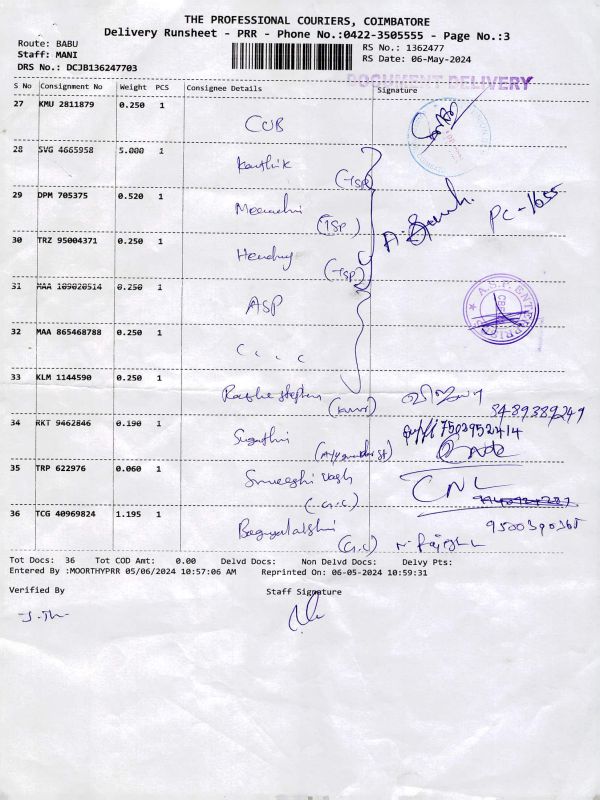 THE PROFESSIONAL COURIERS, COIMBATORE
Delivery Runsheet - PRR - Phone No.:0422-3505555 - Page No.:3
Route: BABU
Staff: MANI
DRS No.: DCJB136247703
RS No.: 1362477
RS Date: 06-May-2024
DOCUMENT DELIVERY
S No Consignment No Weight PCS Consignee Details Signature
27 KMU 2811879 0.250 1
CUB
28 SVG 4665958 5.000 1
Karthik
(TSP)
29 DPM 705375 0.520 1
Meenakshi
(TSP.)
PC-1655
30 TRZ 95004371 0.250 1
(TSP)
31 MAA 109020514 0.250 1
ASP
A.S.P. ENTERPRISES
32 MAA 865468788 0.250 1
33 KLM 1144590 0.250 1
Stephen
9489389249
34 RKT 9462846 0.190 1
Suganthi
7502952414
35 TRP 622976 0.060 1
(G.C)
CNL
36 TCG 40969824 1.195 1
Bagyalakshmi
(G.C)
9500390365
Tot Docs: 36 Tot COD Amt: 0.00 Delvd Docs: Non Delvd Docs: Delvy Pts:
Entered By :MOORTHYPRR 05/06/2024 10:57:06 AM Reprinted On: 06-05-2024 10:59:31
Verified By Staff Signature